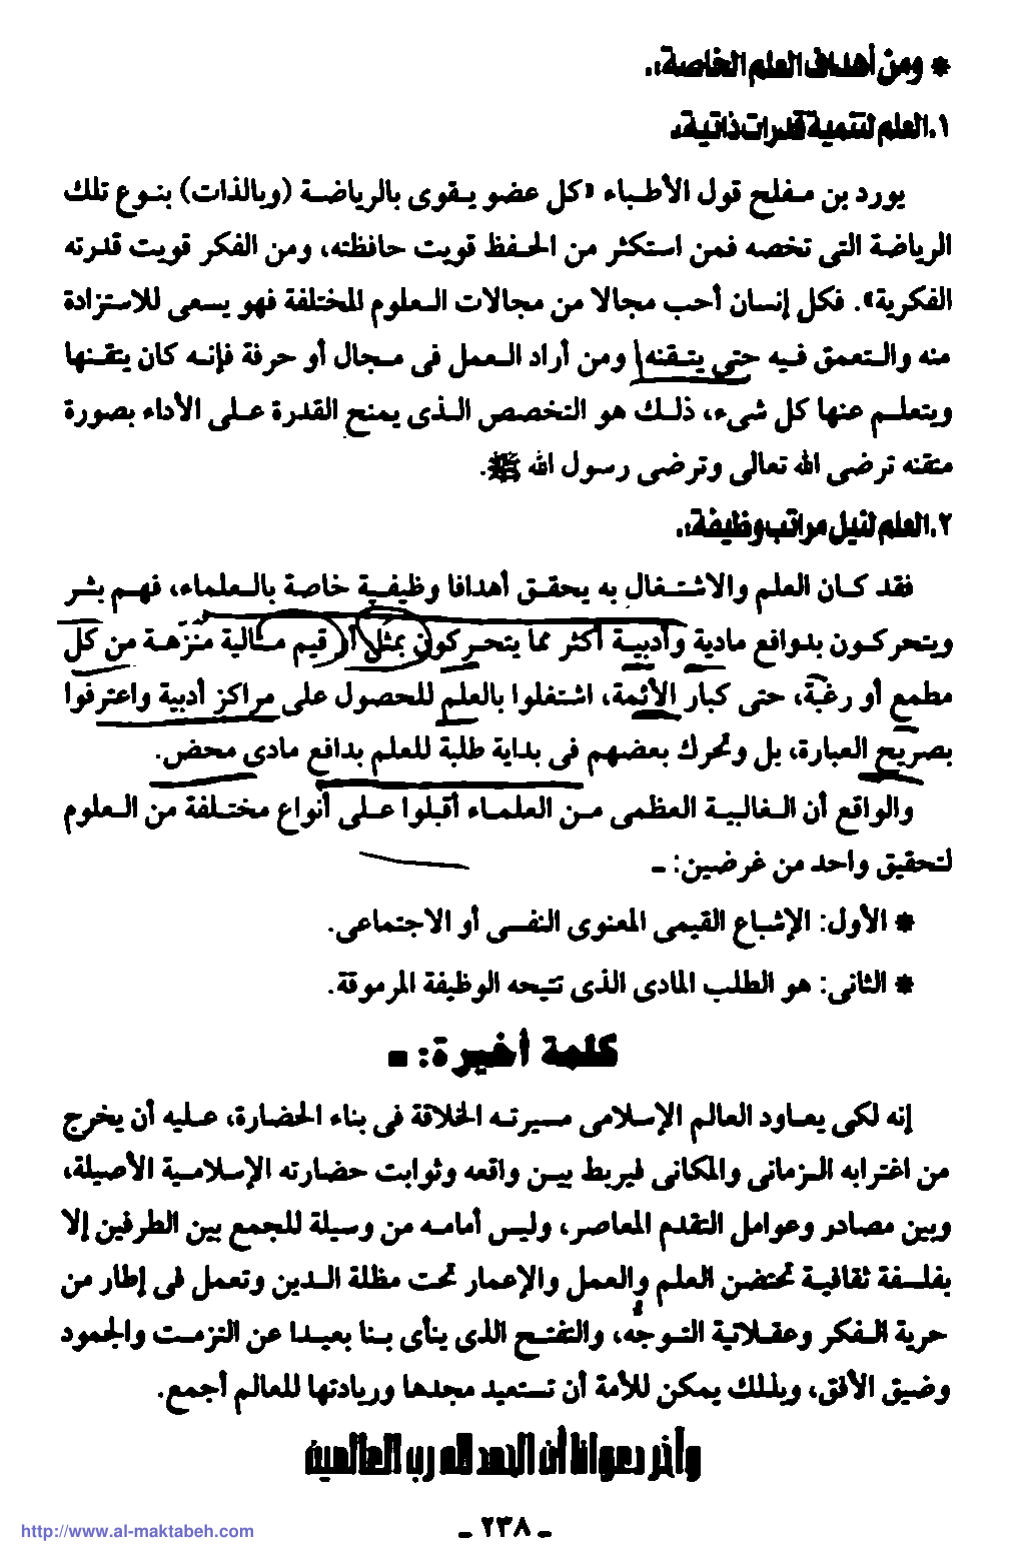 * ومن أهداف العلم الخاصة:.
١. العلم لتنمية قدرات ذاتية.
يورد بن مفلح قول الأطباء «كل عضو يقوى بالرياضة (وبالذات) بنوع تلك
الرياضة التى تخصه فمن استكثر من الحفظ قويت حافظته، ومن الفكر قويت قدرته
الفكرية». فكل إنسان أحب مجالا من مجالات العلوم المختلفة فهو يسعى للاستزادة
منه والتعمق فيه حتى يتقنه ومن أراد العمل فى مجال أو حرفة فإنه كان يتقنها
ويتعلم عنها كل شىء، ذلك هو التخصص الذى يمنح القدرة على الأداء بصورة
متقنه ترضى الله تعالى وترضى رسول الله ﷺ.
٢. العلم لنيل مراتب وظيفة:.
فقد كان العلم والاشتغال به يحقق أهدافا وظيفية خاصة بالعلماء، فهم بشر
ويتحركون بدوافع مادية وأدبية أكثر مما يتحركون بمثل أو قيم مثالية منزهة من كل
مطمع أو رغبة، حتى كبار الأئمة، اشتغلوا بالعلم للحصول على مراكز أدبية واعترفوا
بصريح العبارة، بل وتحرك بعضهم فى بداية طلبة للعلم بدافع مادى محض.
والواقع أن الغالبية العظمى من العلماء أقبلوا على أنواع مختلفة من العلوم
لتحقيق واحد من غرضين: -
* الأول: الإشباع القيمى المعنوى النفسى أو الاجتماعى.
* الثانى: هو الطلب المادى الذى تتيحه الوظيفة المرموقة.
كلمة أخيرة: -
إنه لكى يعاود العالم الإسلامى مسيرته الخلاقة فى بناء الحضارة، عليه أن يخرج
من اغترابه الزمانى والمكانى فيربط بين واقعه وثوابت حضارته الإسلامية الأصيلة،
وبين مصادر وعوامل التقدم المعاصر، وليس أمامه من وسيلة للجمع بين الطرفين إلا
بفلسفة ثقافية تحتضن العلم والعمل والإعمار تحت مظلة الدين وتعمل فى إطار من
حرية الفكر وعقلانية التوجه، والتفتح الذى ينأى بنا بعيدا عن التزمت والجمود
وضيق الأفق، وبذلك يمكن للأمة أن تستعيد مجدها وريادتها للعالم أجمع.
وآخر دعوانا أن الحمد لله رب العالمين
- ٢٣٨ -
http://www.al-maktabeh.com